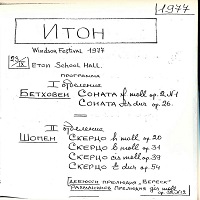 1977
ИТОН
Windsor Festival 1977
29/IX Eton School Hall.
программа
I отделение
Бетховен Соната f moll op. 2 №1
Соната As dur op. 26.
II отделение
Шопен Скерцо h moll op. 20
Скерцо b moll op. 31
Скерцо cis moll op. 39
Скерцо E dur op. 54
Дебюсси прелюдия „Вереск"
Рахманинов прелюдия gis moll